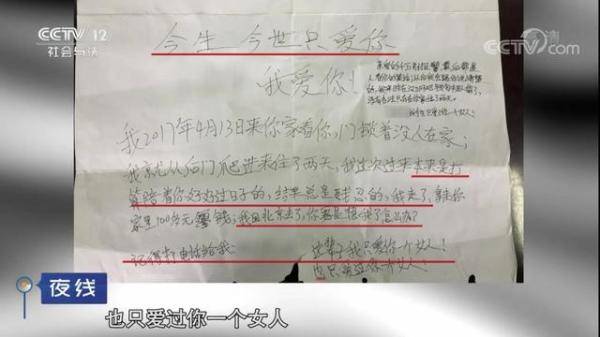 CCTV 12
社会与法
CCTV.com
今生今世只爱你
我爱你!
我2017年4月13日来你家看你,门锁着没人在家;
我就从后门爬进来住了两天,我这次过来本来是打
算陪着你好好过日子的,结果总是残忍的,我走了,拿你
家里100多元零钱;我回北京去了,你要是怀孕了怎么办?
记得打电话给我
这辈子我只爱你一个女人!
也只爱过你一个女人
夜线
也只爱过你一个女人